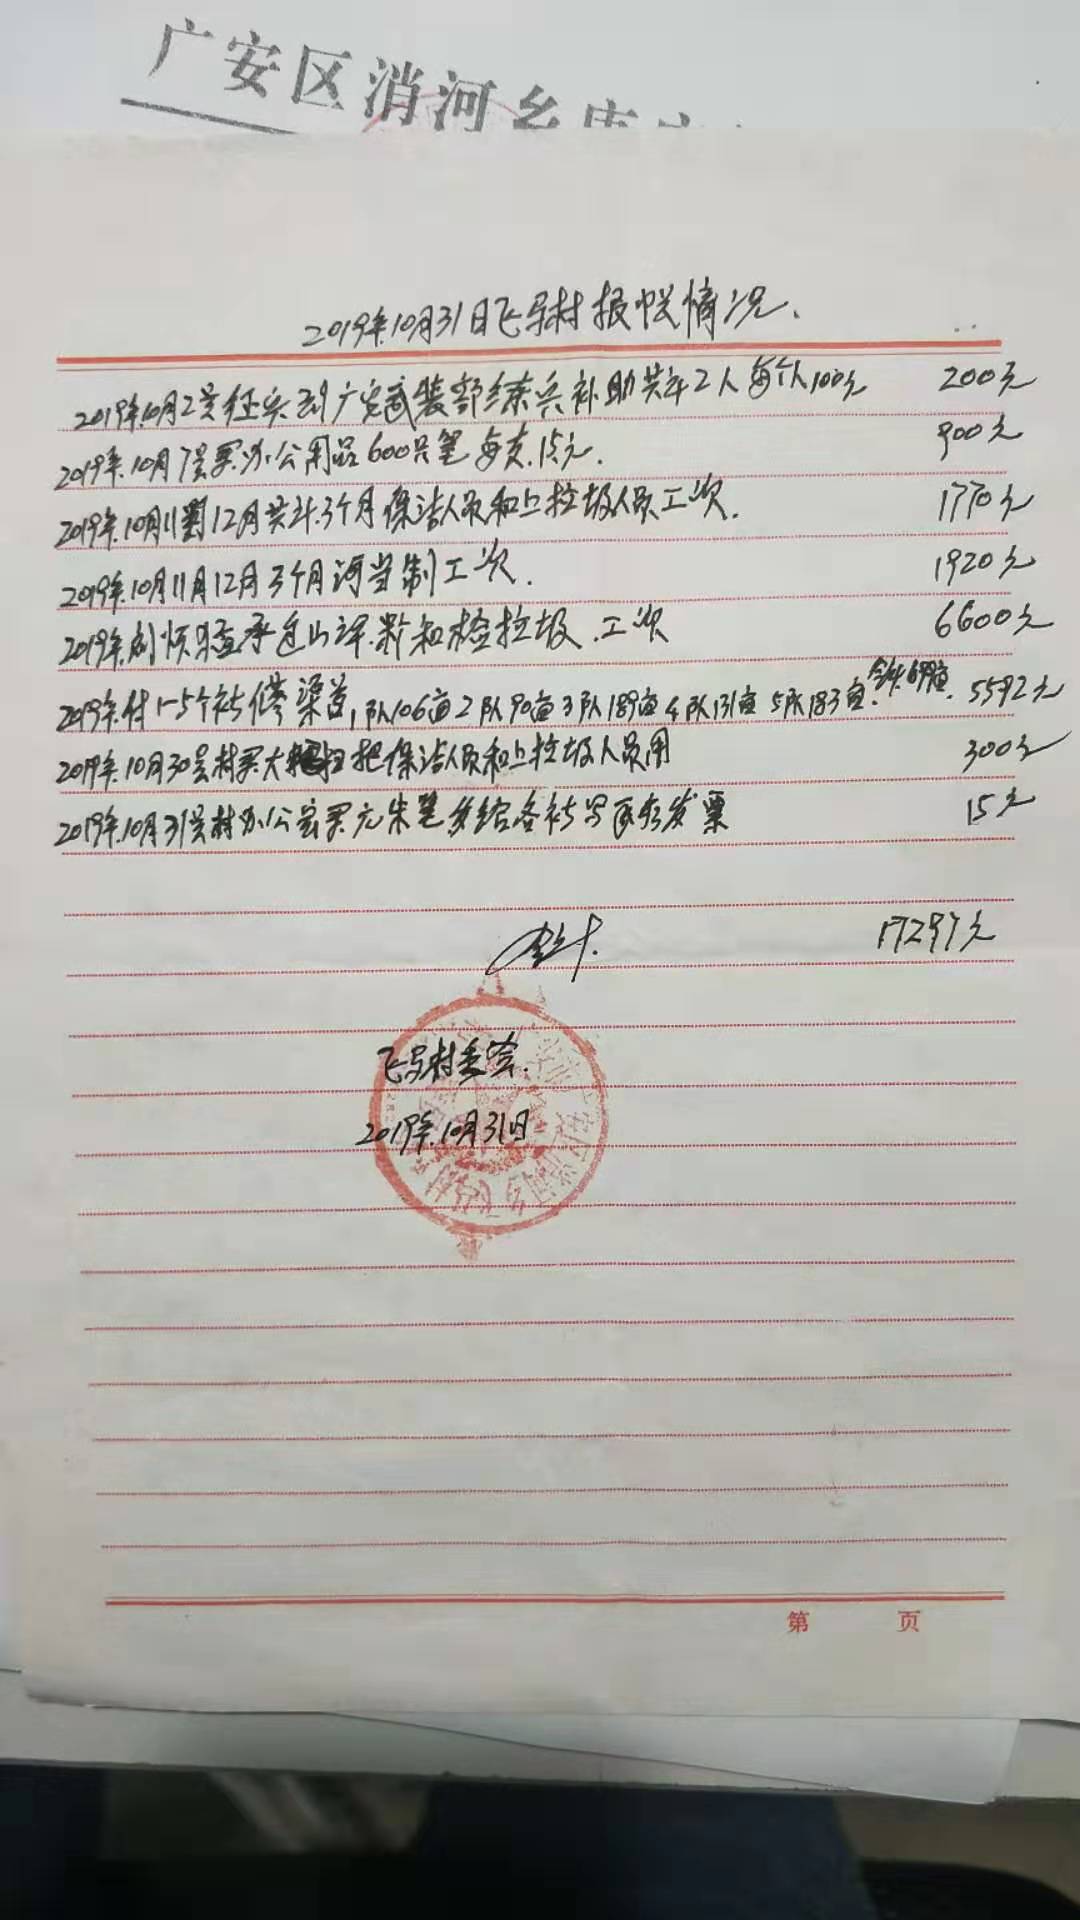 广安区消河乡
2019年10月31日飞马村报帐情况.
2019年10月2号征兵到广安武装部练兵补助共计2人每个人100元 200元
2019年.10月7号买办公用品600只笔每支.1.5元. 900元
2019年.10月11到12月共计.3个月保洁人员和上垃圾人员工资. 1770元
2019年.10月11月12月3个月河长制工资. 1920元
2019年. 和捡垃圾.工资 6600元
2019年.付1-5个社修渠道,1队106亩2队90亩3队189亩4队131亩5队183亩.合计.699亩. 5592元
2019年.10月30号村买大扫把保洁人员和上垃圾人员用 300元
2019年.10月31号村办公室买元朱笔发给各社写 发票 15元
17297元
飞马村委会.
2019年.10月31日
第 页